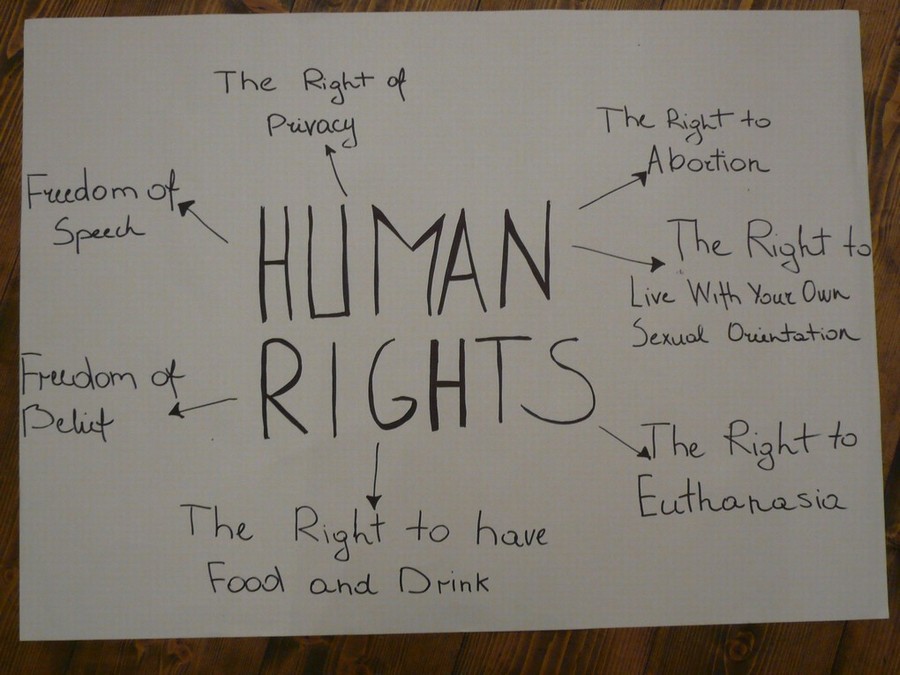 The Right of
Privacy
The Right to
Abortion
Freedom of
Speech
HUMAN
The Right to
Live With Your Own
Sexual Orientation
RIGHTS
Freedom of
Belief
The Right to
Euthanasia
The Right to have
Food and Drink